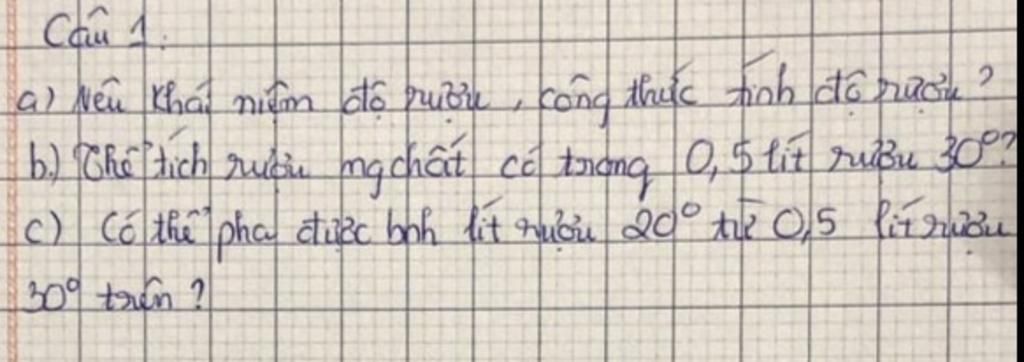 Câu 1:
a) Nêu khái niệm độ rượu, công thức tính độ rượu?
b) Thể tích rượu ngchất có trong 0,5 lít rượu 30°?
c) Có thể pha được bnh lít rượu 20° từ 0,5 lít rượu
30° trên?